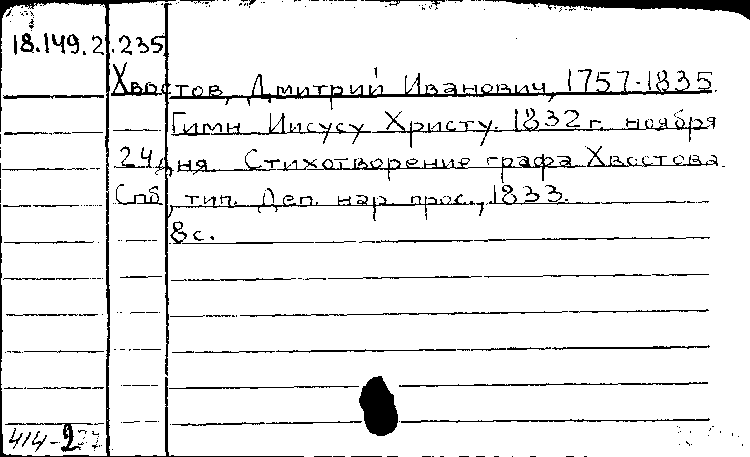 18.149.2.235
Хвостов, Дмитрий Иванович, 1757-1835
Гимн Иисусу Христу. 1832 г. ноября
24 дня Стихотворение графа Хвостова
Спб, тип. Деп. нар. прос., 1833.
8 с.
414-227